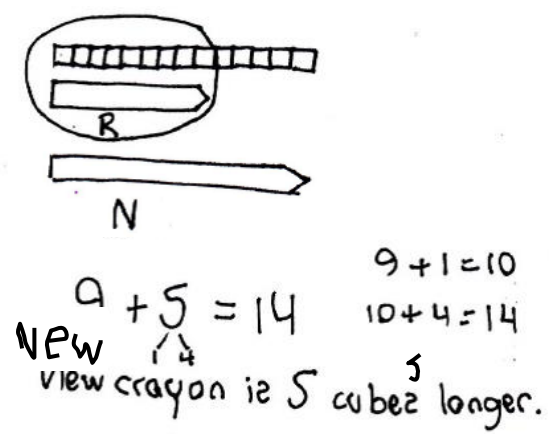 R
N
9 + 5 = 14
1 4
9 + 1 = 10
10 + 4 = 14
New
View crayon is 5 cubes longer.